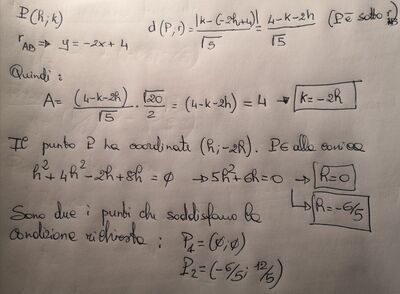 P(h;k)
d(P,r) = |k-(-2h+4)|/√5 = 4-k-2h/√5 (P è sotto r_AB)
r_AB ⇒ y = -2x + 4
Quindi:
A = (4-k-2h)/√5 · √20/2 = (4-k-2h) = 4 → k = -2h
Il punto P ha coordinate (h; -2h). P∈ alla conica
h² + 4h² - 2h + 8h = 0 → 5h² + 6h = 0 → h = 0
↳ h = -6/5
Sono due i punti che soddisfano la
condizione richiesta: P₁ = (0; 0)
P₂ = (-6/5; 12/5)